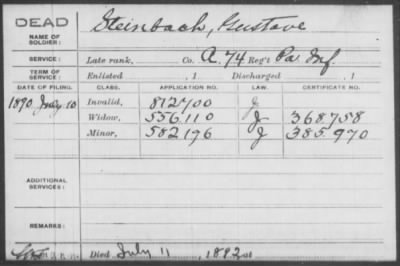 DEAD
NAME OF SOLDIER:
Steinbach, Gustave
SERVICE:
Late rank, Co. A. 74 Reg't Pa Inf.
TERM OF SERVICE:
Enlisted , 1 Discharged , 1
DATE OF FILING. CLASS. APPLICATION NO. LAW. CERTIFICATE NO.
1890 July 10 Invalid, 812700 J
Widow, 556.110 J 368758
Minor, 582196 J 385.970
ADDITIONAL SERVICES:
REMARKS:
Died July 11, 1892 at